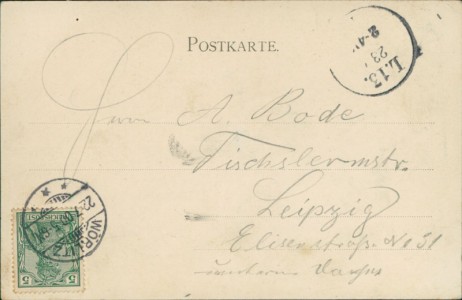 POSTKARTE.
L.13.
23
2-4
Herrn A. Bode
Tischslermstr.
Leipzig
Elisenstraße. No 31
WÖRLITZ
5 5